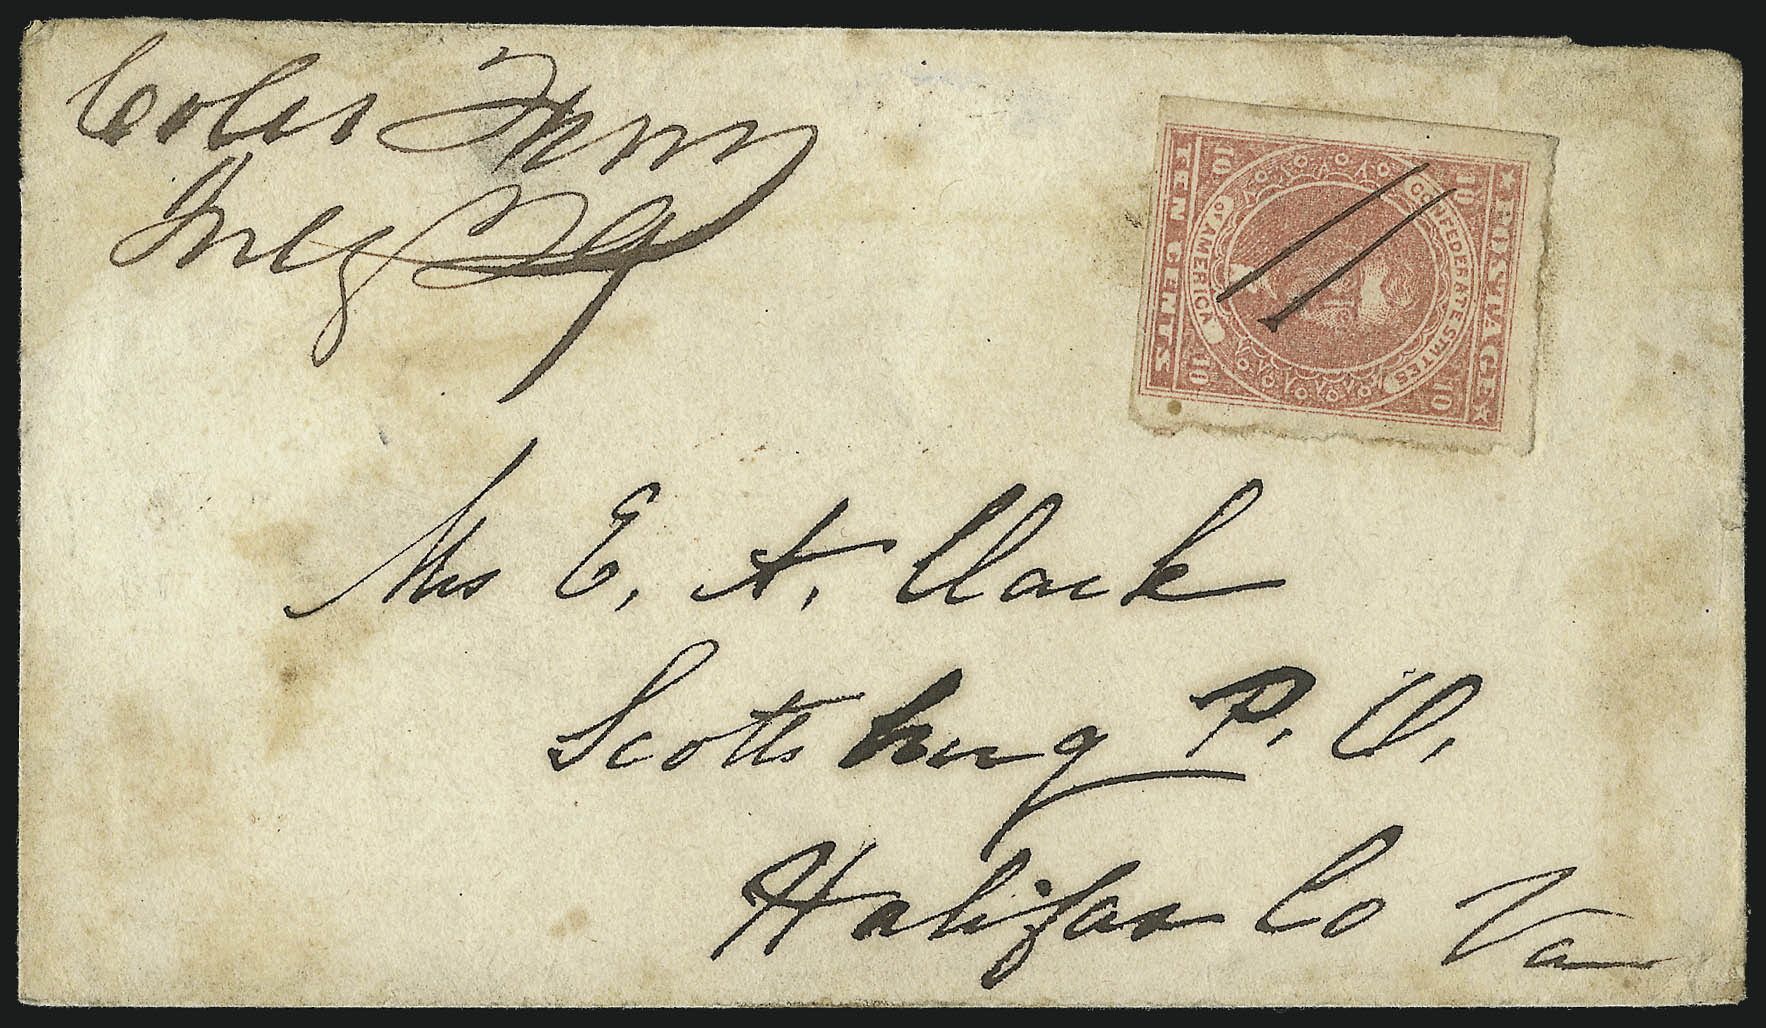 Coles Ferry
July 29
POSTAGE
CONFEDERATE STATES
OF AMERICA
TEN CENTS
10 10
10 10
Mrs E. A. Clark
Scottsburg P. O.
Halifax Co Va